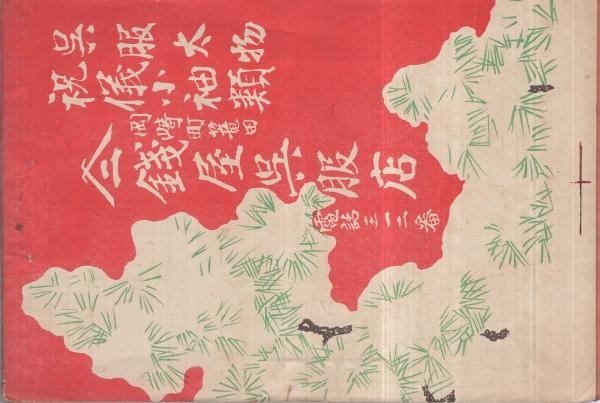 呉服太物
祝儀小袖類
岡崎町篭田
銭屋呉服店
電話三一二番